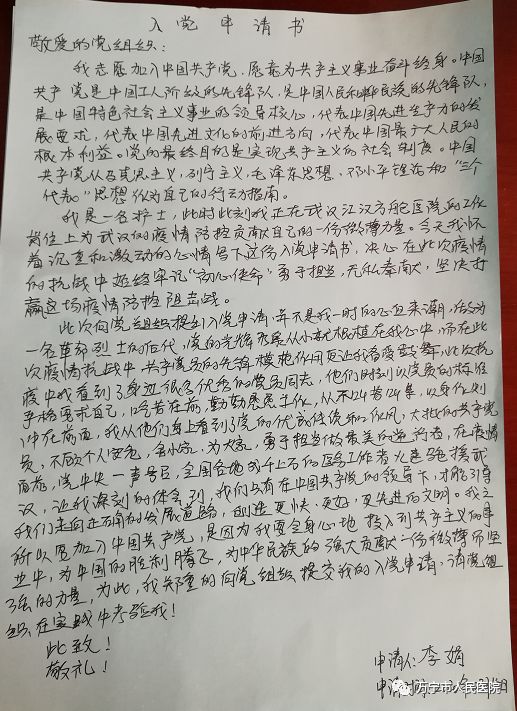 入党申请书
敬爱的党组织：
我志愿加入中国共产党，愿意为共产主义事业奋斗终身。中国
共产党是中国工人阶级的先锋队，是中国人民和中华民族的先锋队，
是中国特色社会主义事业的领导核心，代表中国先进生产力的发
展要求，代表中国先进文化的前进方向，代表中国最广大人民的
根本利益。党的最终目的是实现共产主义的社会制度。中国
共产党以马克思主义，列宁主义，毛泽东思想，邓小平理论和“三个
代表”思想作为自己的行动指南。
我是一名护士，此时此刻我正在武汉江汉方舱医院的工作
岗位上为武汉的疫情防控贡献自己的一份微薄力量。今天我怀
着沉重和激动的心情写下这份入党申请书，决心在此次疫情
的抗战中始终牢记“初心使命”勇于担当，无私奉献，坚决打
赢这场疫情防控阻击战。
此次向党组织提出入党申请，并不是我一时的心血来潮，作为
一名革命烈士的后代，党的光辉形象从小就根植在我心中，而在此
次疫情抗战中共产党员的先锋模范作用更让我备受鼓舞，此次抗
疫中我看到了身边很多优秀的党员同志，他们时刻以党员的标准
严格要求自己，吃苦在前，勤勤恳恳工作，从不
冲在前面，我从他们身上看到了党的优良传统和作风，大批的共产党
员，不顾个人安危，舍小家，为大家，勇于担当做最美的逆行者，在疫情
面前，党中央一声号召，全国各地成千上万的医务工作者火速驰援武
汉，让我深刻的体会到，我们只有在中国共产党的领导下，才能引导
我们走向正确的发展道路，创造更快、更好，更先进的文明。我之
所以要加入中国共产党，是因为我要全身心地投入到共产主义的事
业中，为中国的胜利腾飞，为中华民族的强大贡献一份微薄而坚
强的力量，为此，我郑重的向党组织提交我的入党申请，请党组
织在实践中考验我！
此致！
敬礼！
申请人：李娟
万宁市人民医院